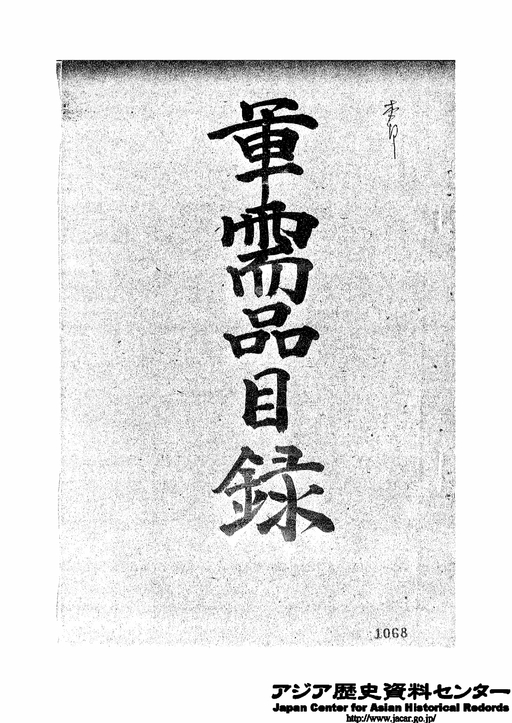 軍需品目録
1068
アジア歴史資料センター
Japan Center for Asian Historical Records
http://www.jacar.go.jp/